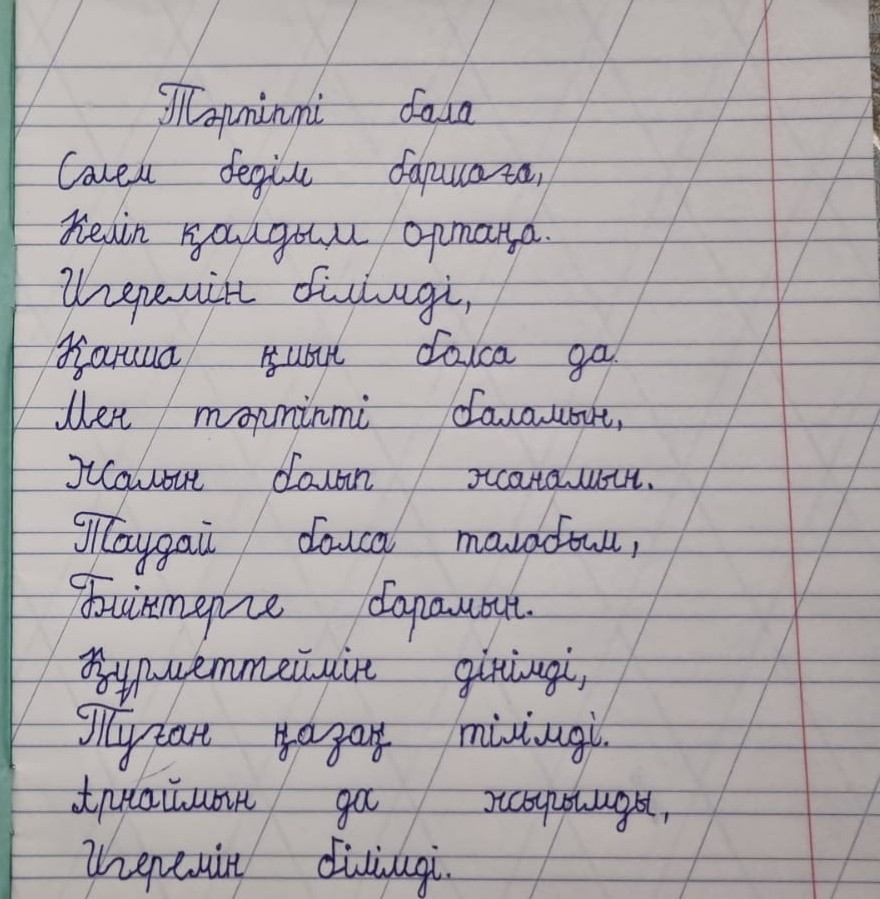 Тәртіпті бала
Сәлем бедім баршаға,
Келіп қалдым ортаңа.
Игеремін білімді,
Қанша қиын болса да.
Мен тәртіпті баламын,
Жалын болып жанамын.
Таудай болса талабым,
Биіктерге барамын.
Құрметтеймін дінімді,
Туған қазақ тілімді.
Арнаймын да жырымды,
Игеремін білімді.